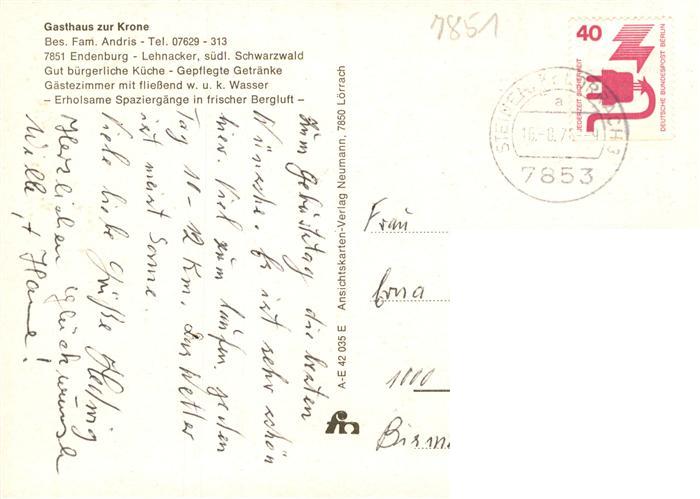 Gasthaus zur Krone
Bes. Fam. Andris - Tel. 07629 - 313
7851 Endenburg - Lehnacker, südl. Schwarzwald
Gut bürgerliche Küche - Gepflegte Getränke
Gästezimmer mit fließend w. u. k. Wasser
– Erholsame Spaziergänge in frischer Bergluft –
7851
40
JEDERZEIT SICHERHEIT
DEUTSCHE BUNDESPOST BERLIN
STEINEN, KR LÖRRACH 3
a
7853
Zum Geburtstag die besten
Wünsche. Es ist sehr schön
hier. Viel zum laufen. Jeden
Tag 10 - 12 Km. Das Wetter
ist meist Sonne.
Viele liebe Grüße Hedwig
Herzlichen Glückwunsch
Willi, +
A-E 42 035 E Ansichtskarten-Verlag Neumann, 7850 Lörrach
Frau
Erna
1000